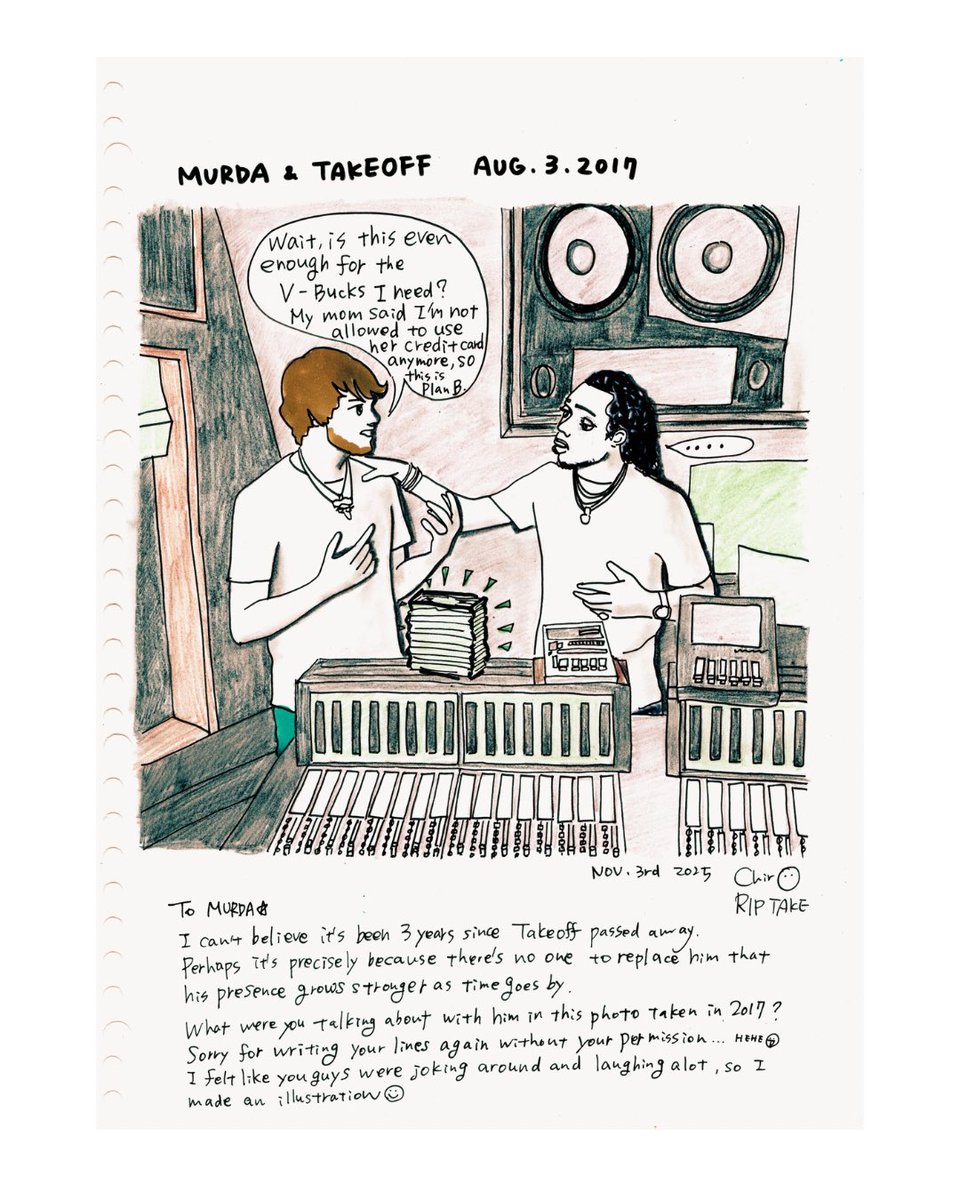 MURDA & TAKEOFF AUG. 3. 2017
Wait, is this even
enough for the
V-Bucks I need?
My mom said I'm not
allowed to use
her credit card
anymore, so
this is
Plan B.
NOV. 3rd 2025 Chiro
RIP TAKE
To MURDA
I can't believe it's been 3 years since Takeoff passed away.
Perhaps it's precisely because there's no one to replace him that
his presence grows stronger as time goes by.
What were you talking about with him in this photo taken in 2017?
Sorry for writing your lines again without your permission... HEHE
I felt like you guys were joking around and laughing alot, so I
made an illustration